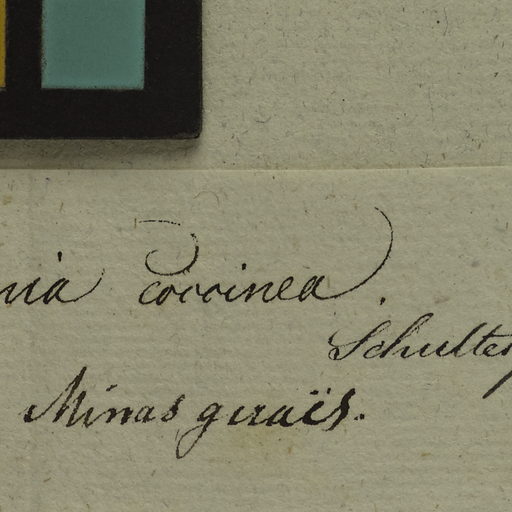 nia coccinea.
Schultes
Minas geraës.